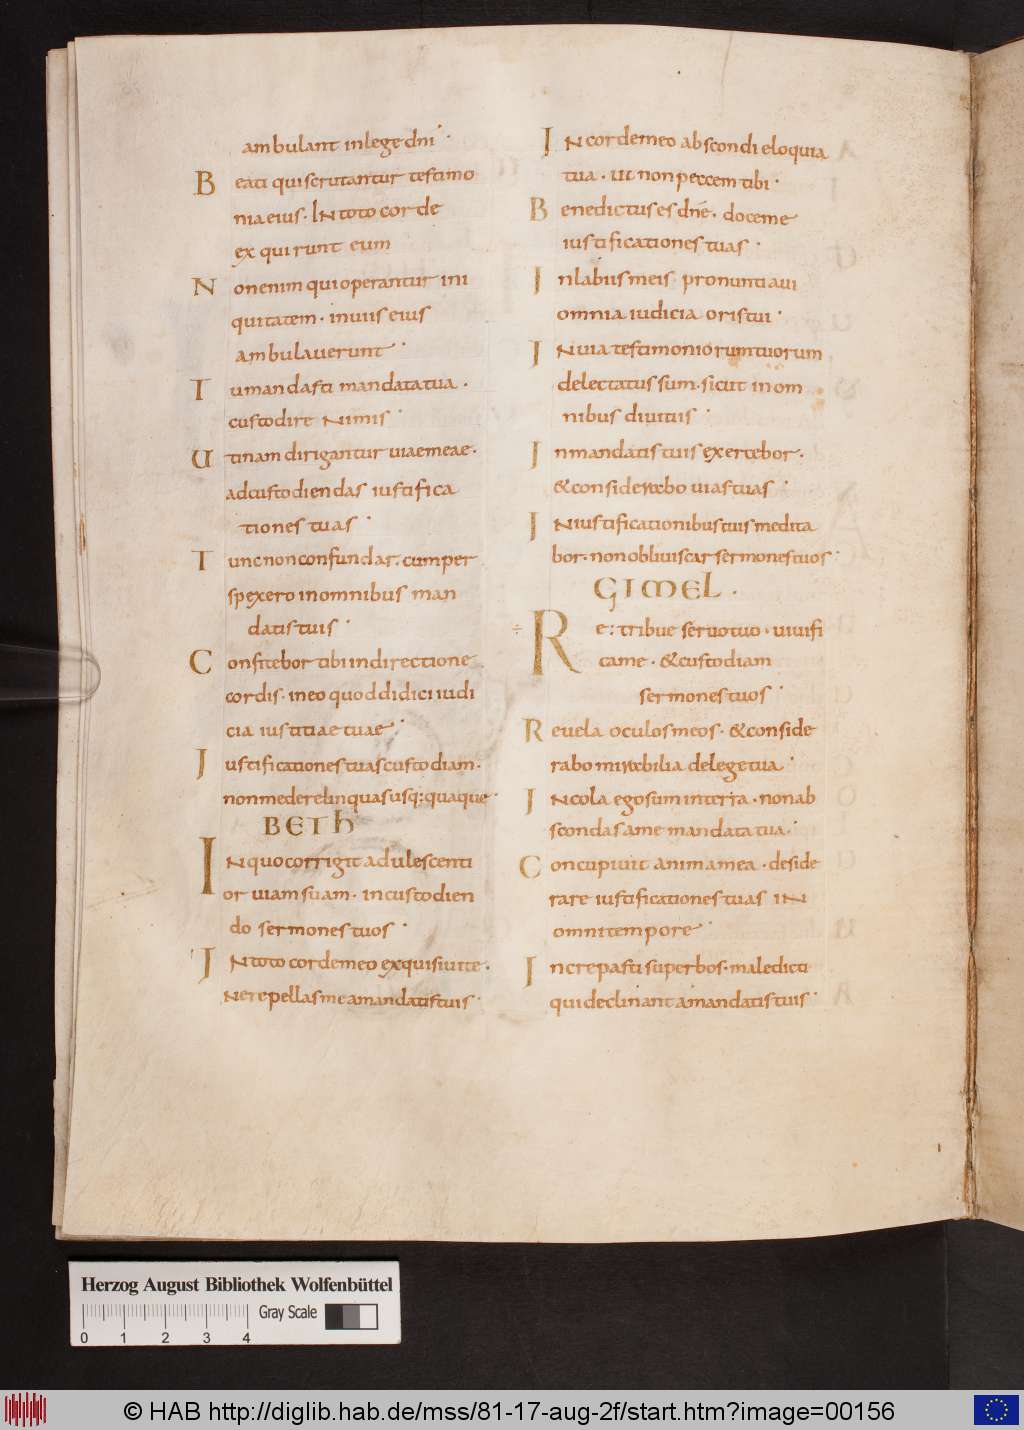 ambulant in lege dni.
Beati qui scrutantur testimo
nia eius. In toto corde
exquirunt eum
Non enim qui operantur ini
quitatem. in uiis eius
ambulauerunt.
Tu mandasti mandata tua.
custodire nimis.
Utinam dirigantur uiae meae.
ad custodiendas iustifica
tiones tuas.
Tunc non confundar. cum per
spexero in omnibus man
datis tuis.
Confitebor tibi in directione
cordis. in eo quod didici iudi
cia iustitiae tuae.
Iustificationes tuas custodiam.
non me derelinquas usq:quaque.
BETH
In quo corrigit adulescenti
or uiam suam. in custodien
do sermones tuos.
In toto corde meo exquisiui te.
Ne repellas me a mandatis tuis.
In corde meo abscondi eloquia
tua. ut non peccem tibi.
Benedictus es dne. doce me
iustificationes tuas.
In labiis meis pronuntiaui
omnia iudicia oris tui.
In uia testimoniorum tuorum
delectatus sum. sicut in om
nibus diuitiis.
In mandatis tuis exercebor.
& considerabo uias tuas.
In iustificationibus tuis medita
bor. non obliuiscar sermones tuos.
GIMEL.
Re:tribue seruo tuo. uiuifi
ca me. & custodiam
sermones tuos.
Reuela oculos meos. & conside
rabo mirabilia de lege tua.
Incola ego sum in terra. non ab
scondas a me mandata tua.
Concupiuit anima mea. deside
rare iustificationes tuas in
omni tempore.
Increpasti superbos. maledicti
qui declinant a mandatis tuis.
Herzog August Bibliothek Wolfenbüttel
Gray Scale
0 1 2 3 4
© HAB http://diglib.hab.de/mss/81-17-aug-2f/start.htm?image=00156